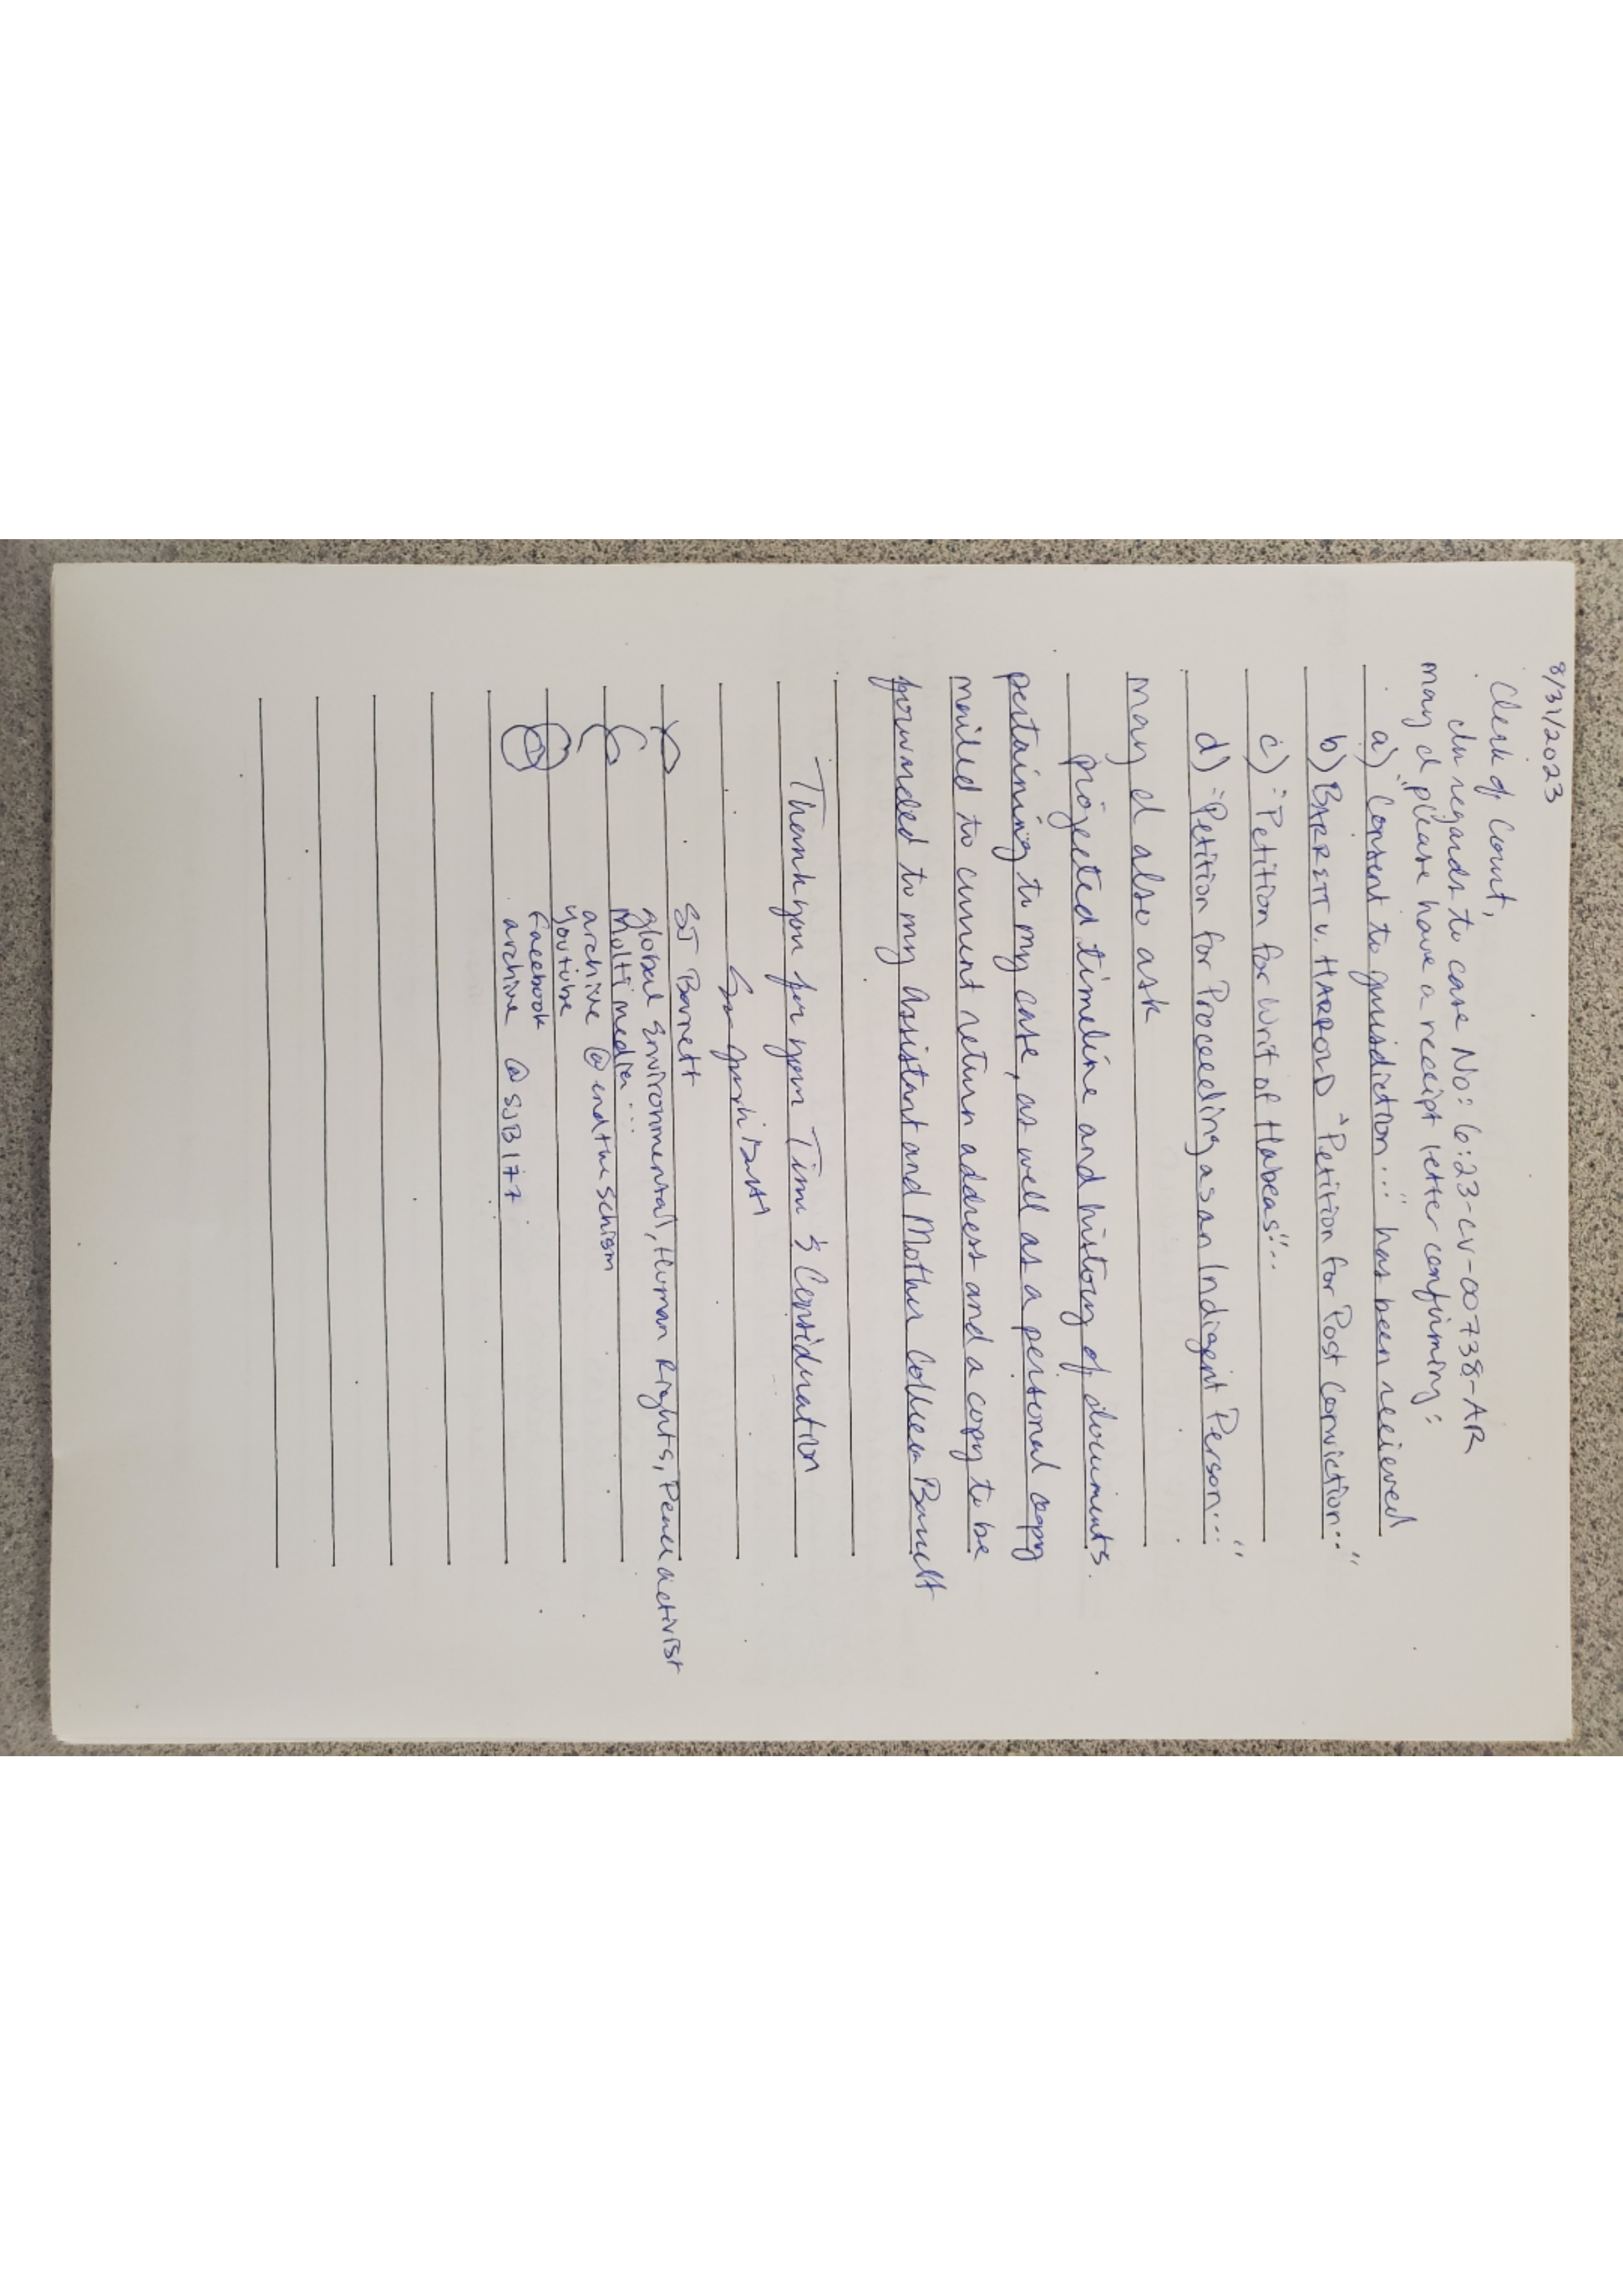 8/31/2023
Clerk of Court,
In regards to case No: 6:23-cv-00738-AR
may I please have a receipt letter confirming:
a) "Consent to jurisdiction..." has been recieved
b) BARRETT v. HARROLD "Petition for Post Conviction..."
c) "Petition for Writ of Habeas"...
d) "Petition for Proceeding as an Indigent Person..."
may I also ask
projected timeline and history of documents.
pertaining to my case, as well as a personal copy
mailed to current return address and a copy to be
forwarded to my assistant and Mother Colleen Barrett
Thank you for your Time & Consideration
SJ Barrett
global Environmental, Human Rights, Peace activist
Multimedia...
archive @endtheschism
youtube
facebook
archive @SJB177